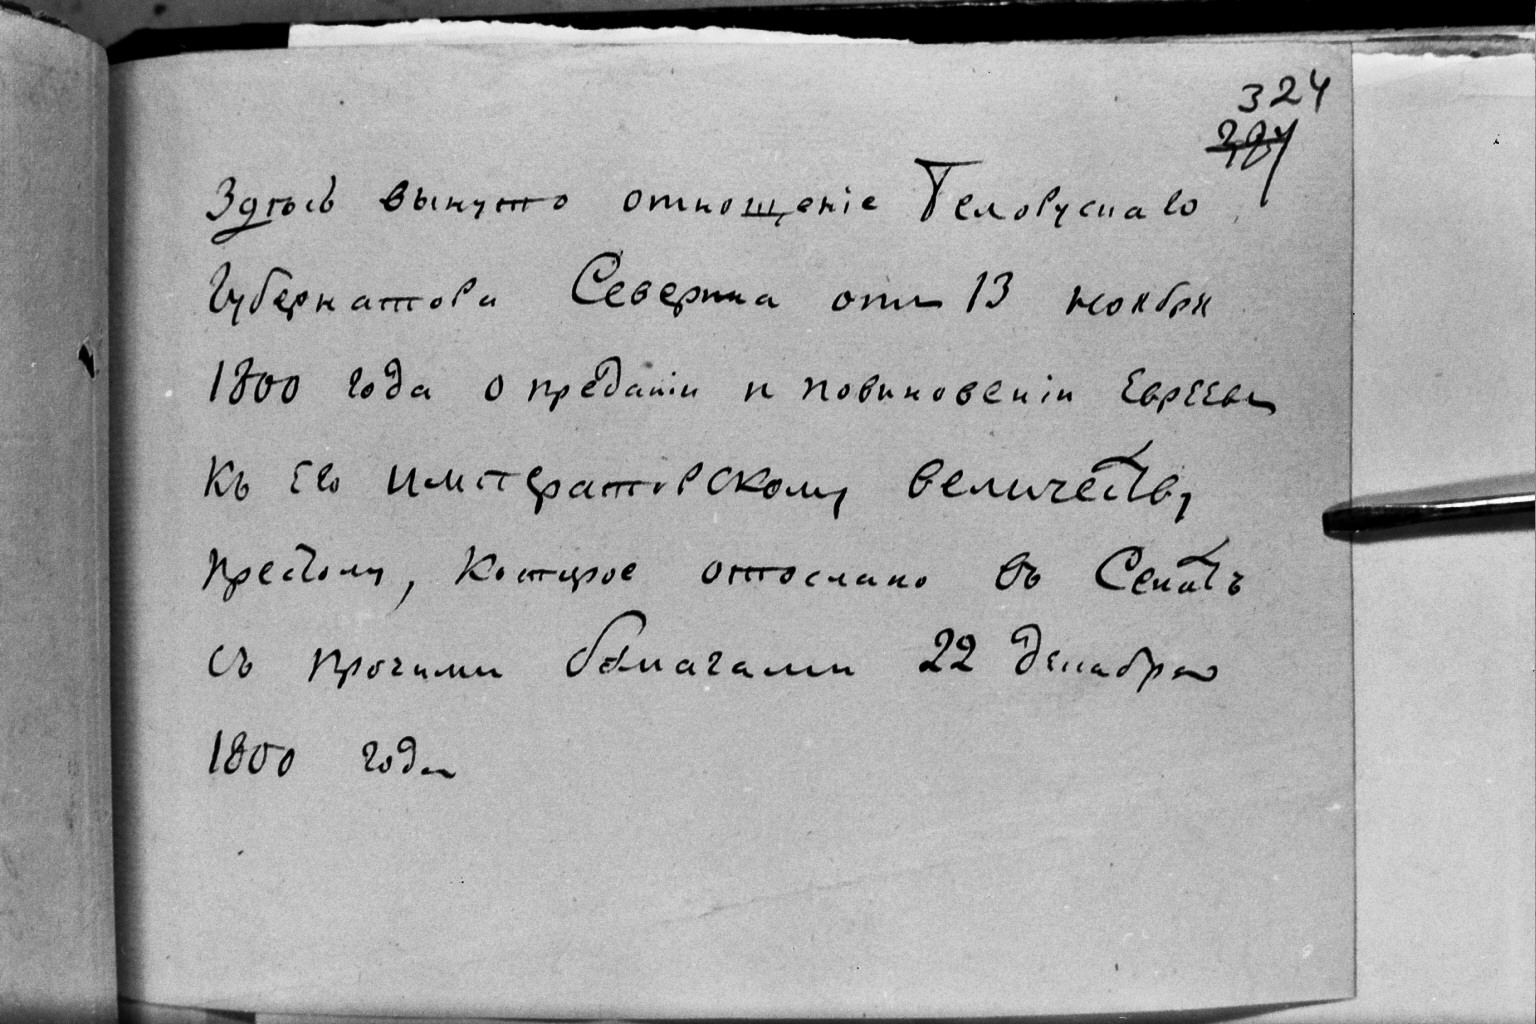 324
Здѣсь вынуто отношеніе Белорускаго
Губернатора Северина отъ 13 ноября
1800 года о преданіи и повиновеніи Евреевъ
къ Его императорскому величеству
престолу, которое отослано въ Сенатъ
съ прочими бумагами 22 декабря
1800 года